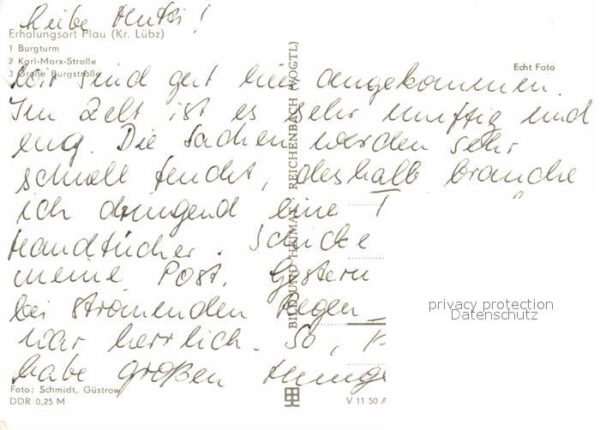 Liebe Mutti!
Erholungsort Plau (Kr. Lübz)
1 Burgturm
2 Karl-Marx-Straße
3 Große Burgstraße
Echt Foto
Wir sind gut hier angekommen.
Im Zelt ist es sehr muffig und
eng. Die Sachen werden sehr
schnell feucht, deshalb brauche
ich dringend eine T
Handtücher. Schicke
meine Post. Gestern
bei strömenden Regen
war herrlich. So,
habe großen Hunge
BILD UND HEIMAT REICHENBACH (VOGTL)
privacy protection
Datenschutz
Foto: Schmidt, Güstrow
DDR 0,25 M
V 11 50 A